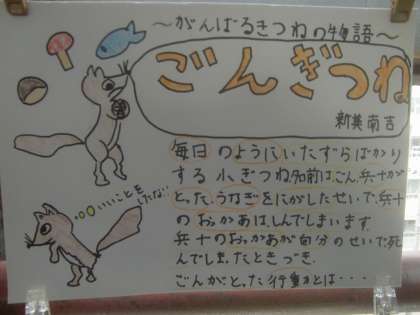 ～がんばるきつねの物語～
ごんぎつね
新美南吉
毎日のようにいたずらばかり
する小ぎつね名前は、ごん。兵十が
とったうなぎをにがしたせいで、兵十
のおっかあは、しんでしまいます。
兵十のおっかあが自分のせいで死
んでしまったときづき、
ごんがとった行動とは・・・
いいことをしたな…